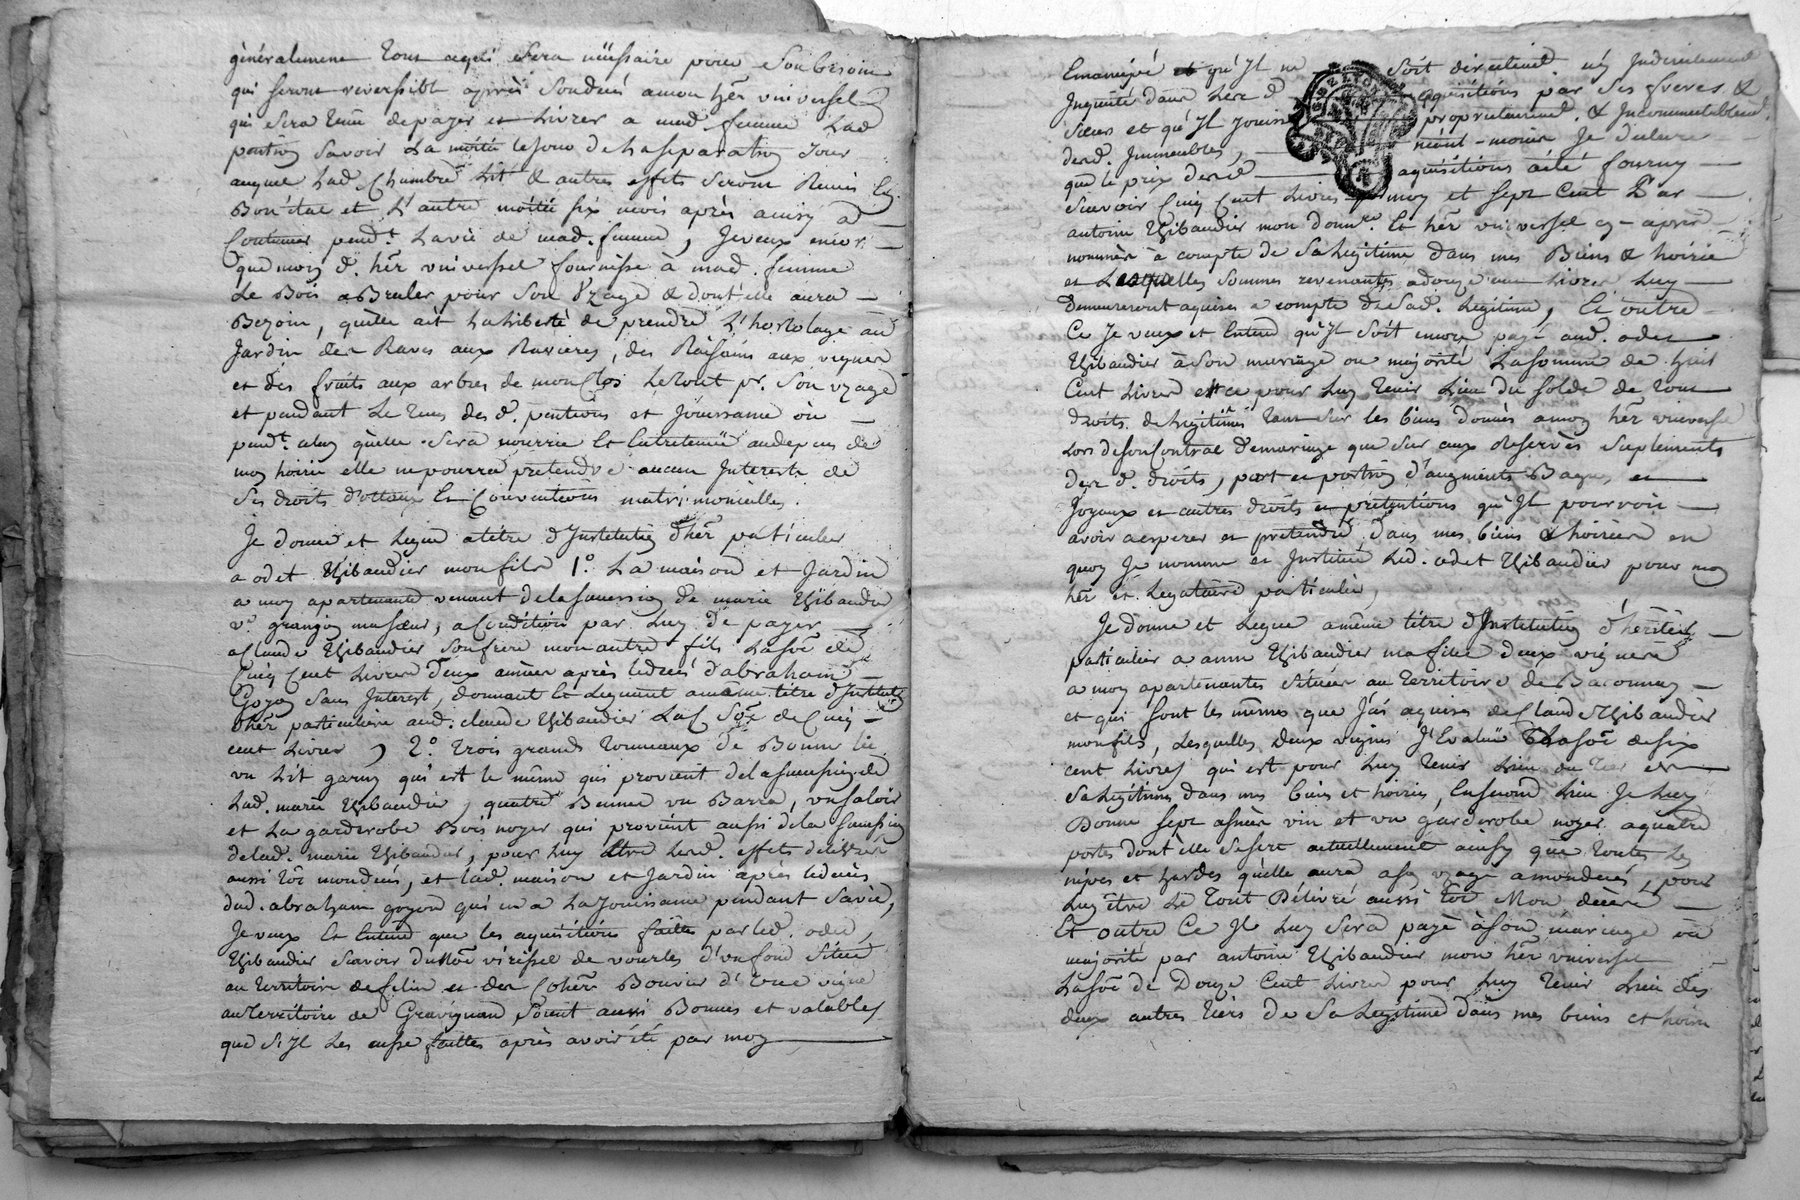 généralement tout ce qui sera néssaire pour son besoin
qui seront reversible après son décès a mon her universel
qui sera tenu de payer et livrer a mad. femme lad
pention savoir la moitié le jour de la separation jour
auquel lad. Chambre Lit & autres effits seront Remis En
Bon état et l'autre moitié six mois après ainsy a
Continuer pendt. la vie de mad. femme, Je veux encor
que mon d. hér universel fournisse à mad. femme
Le Bois a Bruler pour son Uzage & dont elle aura
Bezoin, qu'elle ait la liberté de prendre l'hortolage au
Jardin des Raves aux Ravieres, des Raisins aux vignes
et des fruits aux arbres de mon Clos Le tout pr. son uzage
et pendant le tems des d. pentions et Jouissance ou
pendt. celuy qu'elle sera nourrie Et Entretenüe au depens de
mon hoirie elle ne pourra pretendre aucun Interests de
ses droits dottaux Et Conventions matrimonielles.
Je donne et Legue a titre d'Institution d'hér particulier
a odet Thibaudier mon fils 1.° La maison et Jardin
a moy apartenants venant de la succession de marie Thibaudier
ve. grangon ma sœur, a Condition par Luy de payer
a Claude Thibaudier son frere mon autre fils La soe de
Cinq Cent Livres deux années après le décès d'abraham
Goyon sans Interest, donnant Et Leguant a meme titre d'Institution
d'hér particuliere aud. claude Thibaudier Lad. soe de Cinq
cent Livres, 2.° trois grands tonneaux de Bonne lie
un Lit garny qui est le même qui provient de la succession de
Lad. marie Thibaudier, quatre Bennes un Barral, un saloir
et La garderobe Bois noyer qui provient aussi de la succession
de lad. marie Thibaudier, pour luy être lesd. effets delivrés
aussi tôt mon decés, et lad. maison et Jardin après le decés
dud. abraham goyon qui en a la Jouissance pendant sa vie,
Je veux Et Entend que les aquisitions faites par led. odet
Thibaudier savoir du de vourles d'un fond situé
au territoire de felin et des Coher Bouvier d'une vigne
au territoire de Gravignan soient aussi Bonnes et valables
que si Il les eusse faittes après avoir été par moy
Emancipé et qu'Il ne soit directement ny Indirectement
Inquieté dans les d. aquisitions par ses freres &
sœurs et qu'Il Jouisse proprietairement & Incommutablement
desd. Immeubles, néant-moins Je declare
que le prix desd. aquisitions a été fourny
scavoir Cinq Cent Livres par moy et sept Cent Par
antoine Thibaudier mon donnre. Et hér universel cy-après
nommé à compte de sa legitime dans mes Biens & hoirie
et Lesquelles sommes revenantes a douze cent Livres Luy
demeureront aquises a compte de sad. Legitime, Et outre
Ce Je veux et Entend qu'Il soit encore payé aud. odet
Thibaudier à son mariage ou majorité La somme de huit
Cent Livres et ce pour Luy tenir Lieu du solde de tous
droits de Legitimes tant sur les biens donnés a mon hér universel
Lors de son Contrat de mariage que sur aux reservés suplements
des d. droits, part et portion d'augments Bagues et
Joyaux et autres droits et pretentions qu'Il pourroit
avoir a esperer et pretendre dans mes biens & hoiries en
quoy Je nomme et Institue Led. odet Thibaudier pour mon
hér et Legataire particulier,
Je donne et Legue a même titre d'Institution d'heritiere
particuliere a anne Thibaudier ma fille deux vignes
a moy apartenantes situées au territoire de Baconnay
et qui sont les mêmes que J'ai aquises de Claude Thibaudier
mon fils, Lesquelles deux vignes J'Evalüe La soe de six
cent Livres qui est pour Luy tenir Lieu du tier de
sa Legitime dans mes biens et hoiries, En second Lieu Je Luy
Donne sept asnées vin et un garderobe noyer a quatre
portes dont elle se sert actuellement ainsy que toutes Les
nipes et hardes qu'elle aura a son uzage a mon decés, pour
Luy être Le tout Délivré aussi tôt Mon décès
Et outre Ce Il Luy sera payé à son mariage ou
majorité par antoine Thibaudier mon hér universel
La soe de Douze Cent Livres pour Luy tenir Lieu des
deux autres tiers de sa Legitime dans mes biens et hoirie